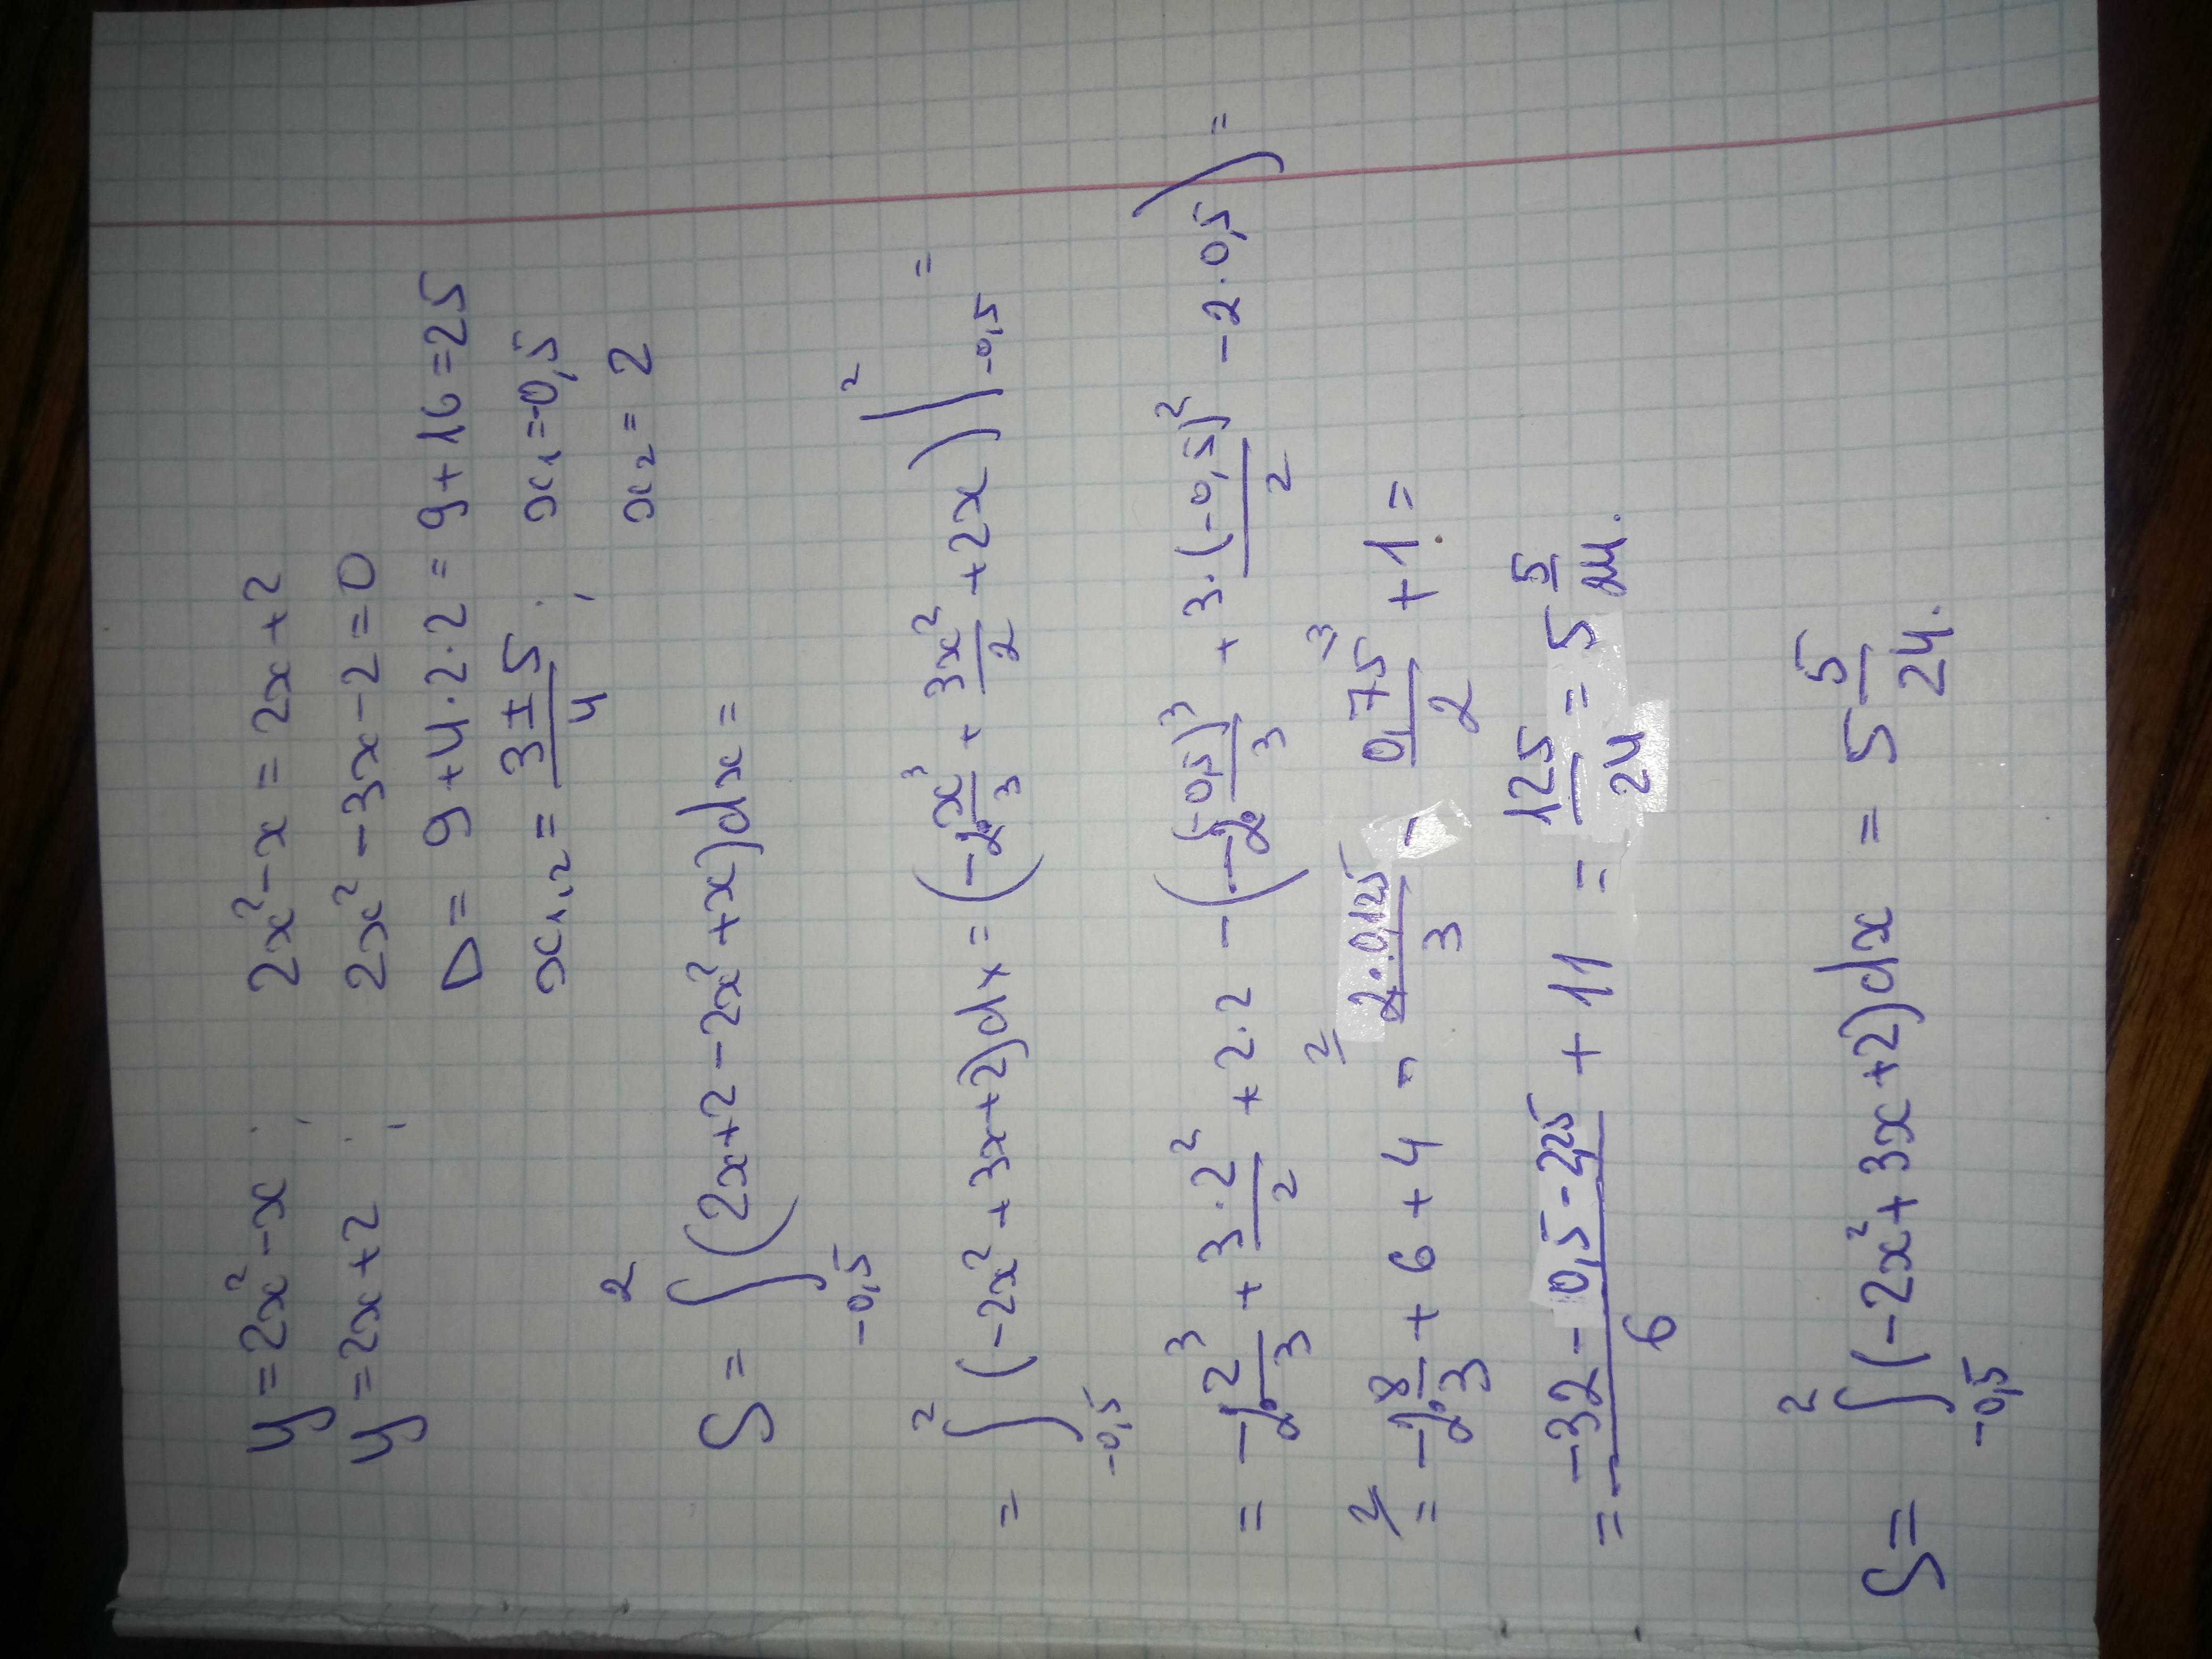 y = 2x² - x ; 2x² - x = 2x + 2
y = 2x + 2 ; 2x² - 3x - 2 = 0
D = 9 + 4·2·2 = 9 + 16 = 25
x₁,₂ = (3 ± 5)/4 ; x₁ = -0,5
x₂ = 2
S = ∫_{-0,5}^{2} (2x + 2 - 2x² + x)dx =
= ∫_{-0,5}^{2} (-2x² + 3x + 2)dx = (-2·x³/3 + 3x²/2 + 2x)|_{-0,5}^{2} =
= -2·2³/3 + 3·2²/2 + 2·2 - (-2·(-0,5)³/3 + 3·(-0,5)²/2 - 2·0,5) =
= -2·8/3 + 6 + 4 - 2·0,125/3 - 0,75/2 + 1 =
= (-32 - 0,5 - 2,25)/6 + 11 = 125/24 = 5 5/24.
S = ∫_{-0,5}^{2} (-2x² + 3x + 2)dx = 5 5/24.